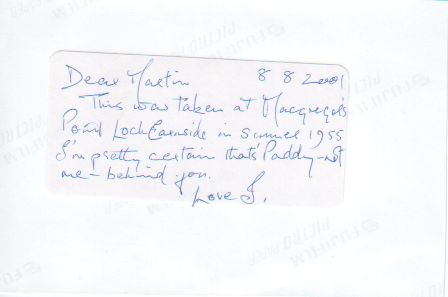 Dear Martin 8 8 2001
This was taken at Macgregor's
Point LochEarnside in summer 1955
I'm pretty certain that's Paddy - not
me - behind you.
Love J.
FUJIFILM